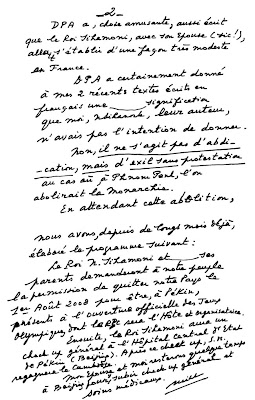 -2-
DPA a, chose amusante, aussi écrit
que le Roi Sihamoni, avec son Epouse (sic!),
allait s'établir d'une façon très modeste
en France.
DPA a certainement donné
à mes 2 récents textes écrits en
français une signification
que moi, N. Sihanouk, leur auteur,
n'avais pas l'intention de donner.
Non, il ne s'agit pas d'abdi-
-cation, mais d'exil sans protestation
au cas où à Phnom Penh, l'on
abolirait la Monarchie.
En attendant cette abolition,
nous avons, depuis de longs mois déjà,
élaboré le programme suivant :
Le Roi N. Sihamoni et ses
parents demanderont à notre peuple
la permission de quitter notre Pays le
1er Août 2008 pour être, à Pékin,
présents à l'ouverture officielle des Jeux
Olympiques, dont la RPC sera l'Hôte et organisatrice.
Ensuite, le Roi Sihamoni aura un
check up général à l'Hôpital central d'Etat
de Pékin (Beijing). Après ce check up, S.M.
regagnera le Cambodge.
Mon Epouse et moi resterons quelque temps
à Beijing pour subir check up général et
soins médicaux.